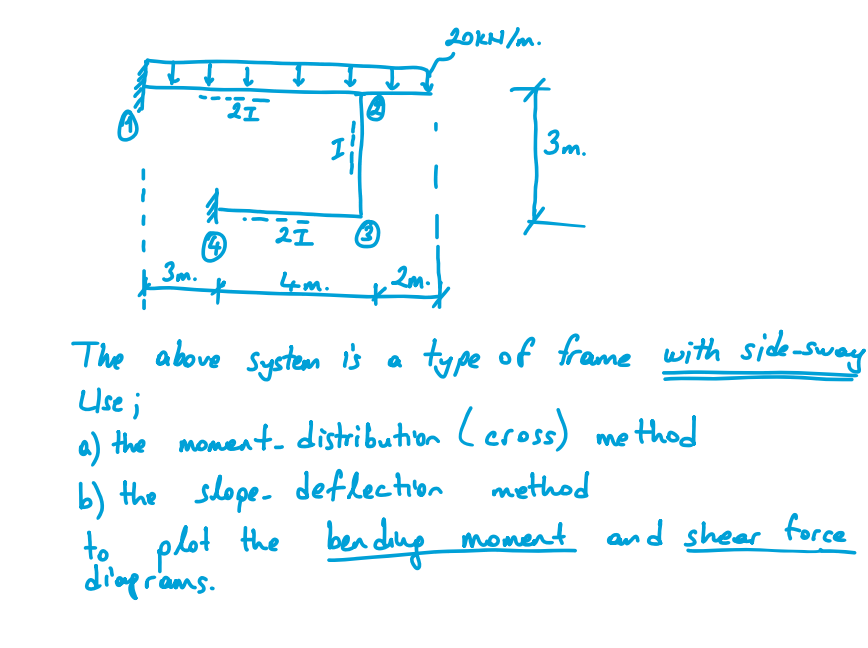 20kN/m.
1
2I
2
I
3m.
4
2I
3
3m.
4m.
2m.
The above system is a type of frame with side-sway
Use;
a) the moment-distribution (cross) method
b) the slope-deflection method
to plot the bending moment and shear force
diagrams.